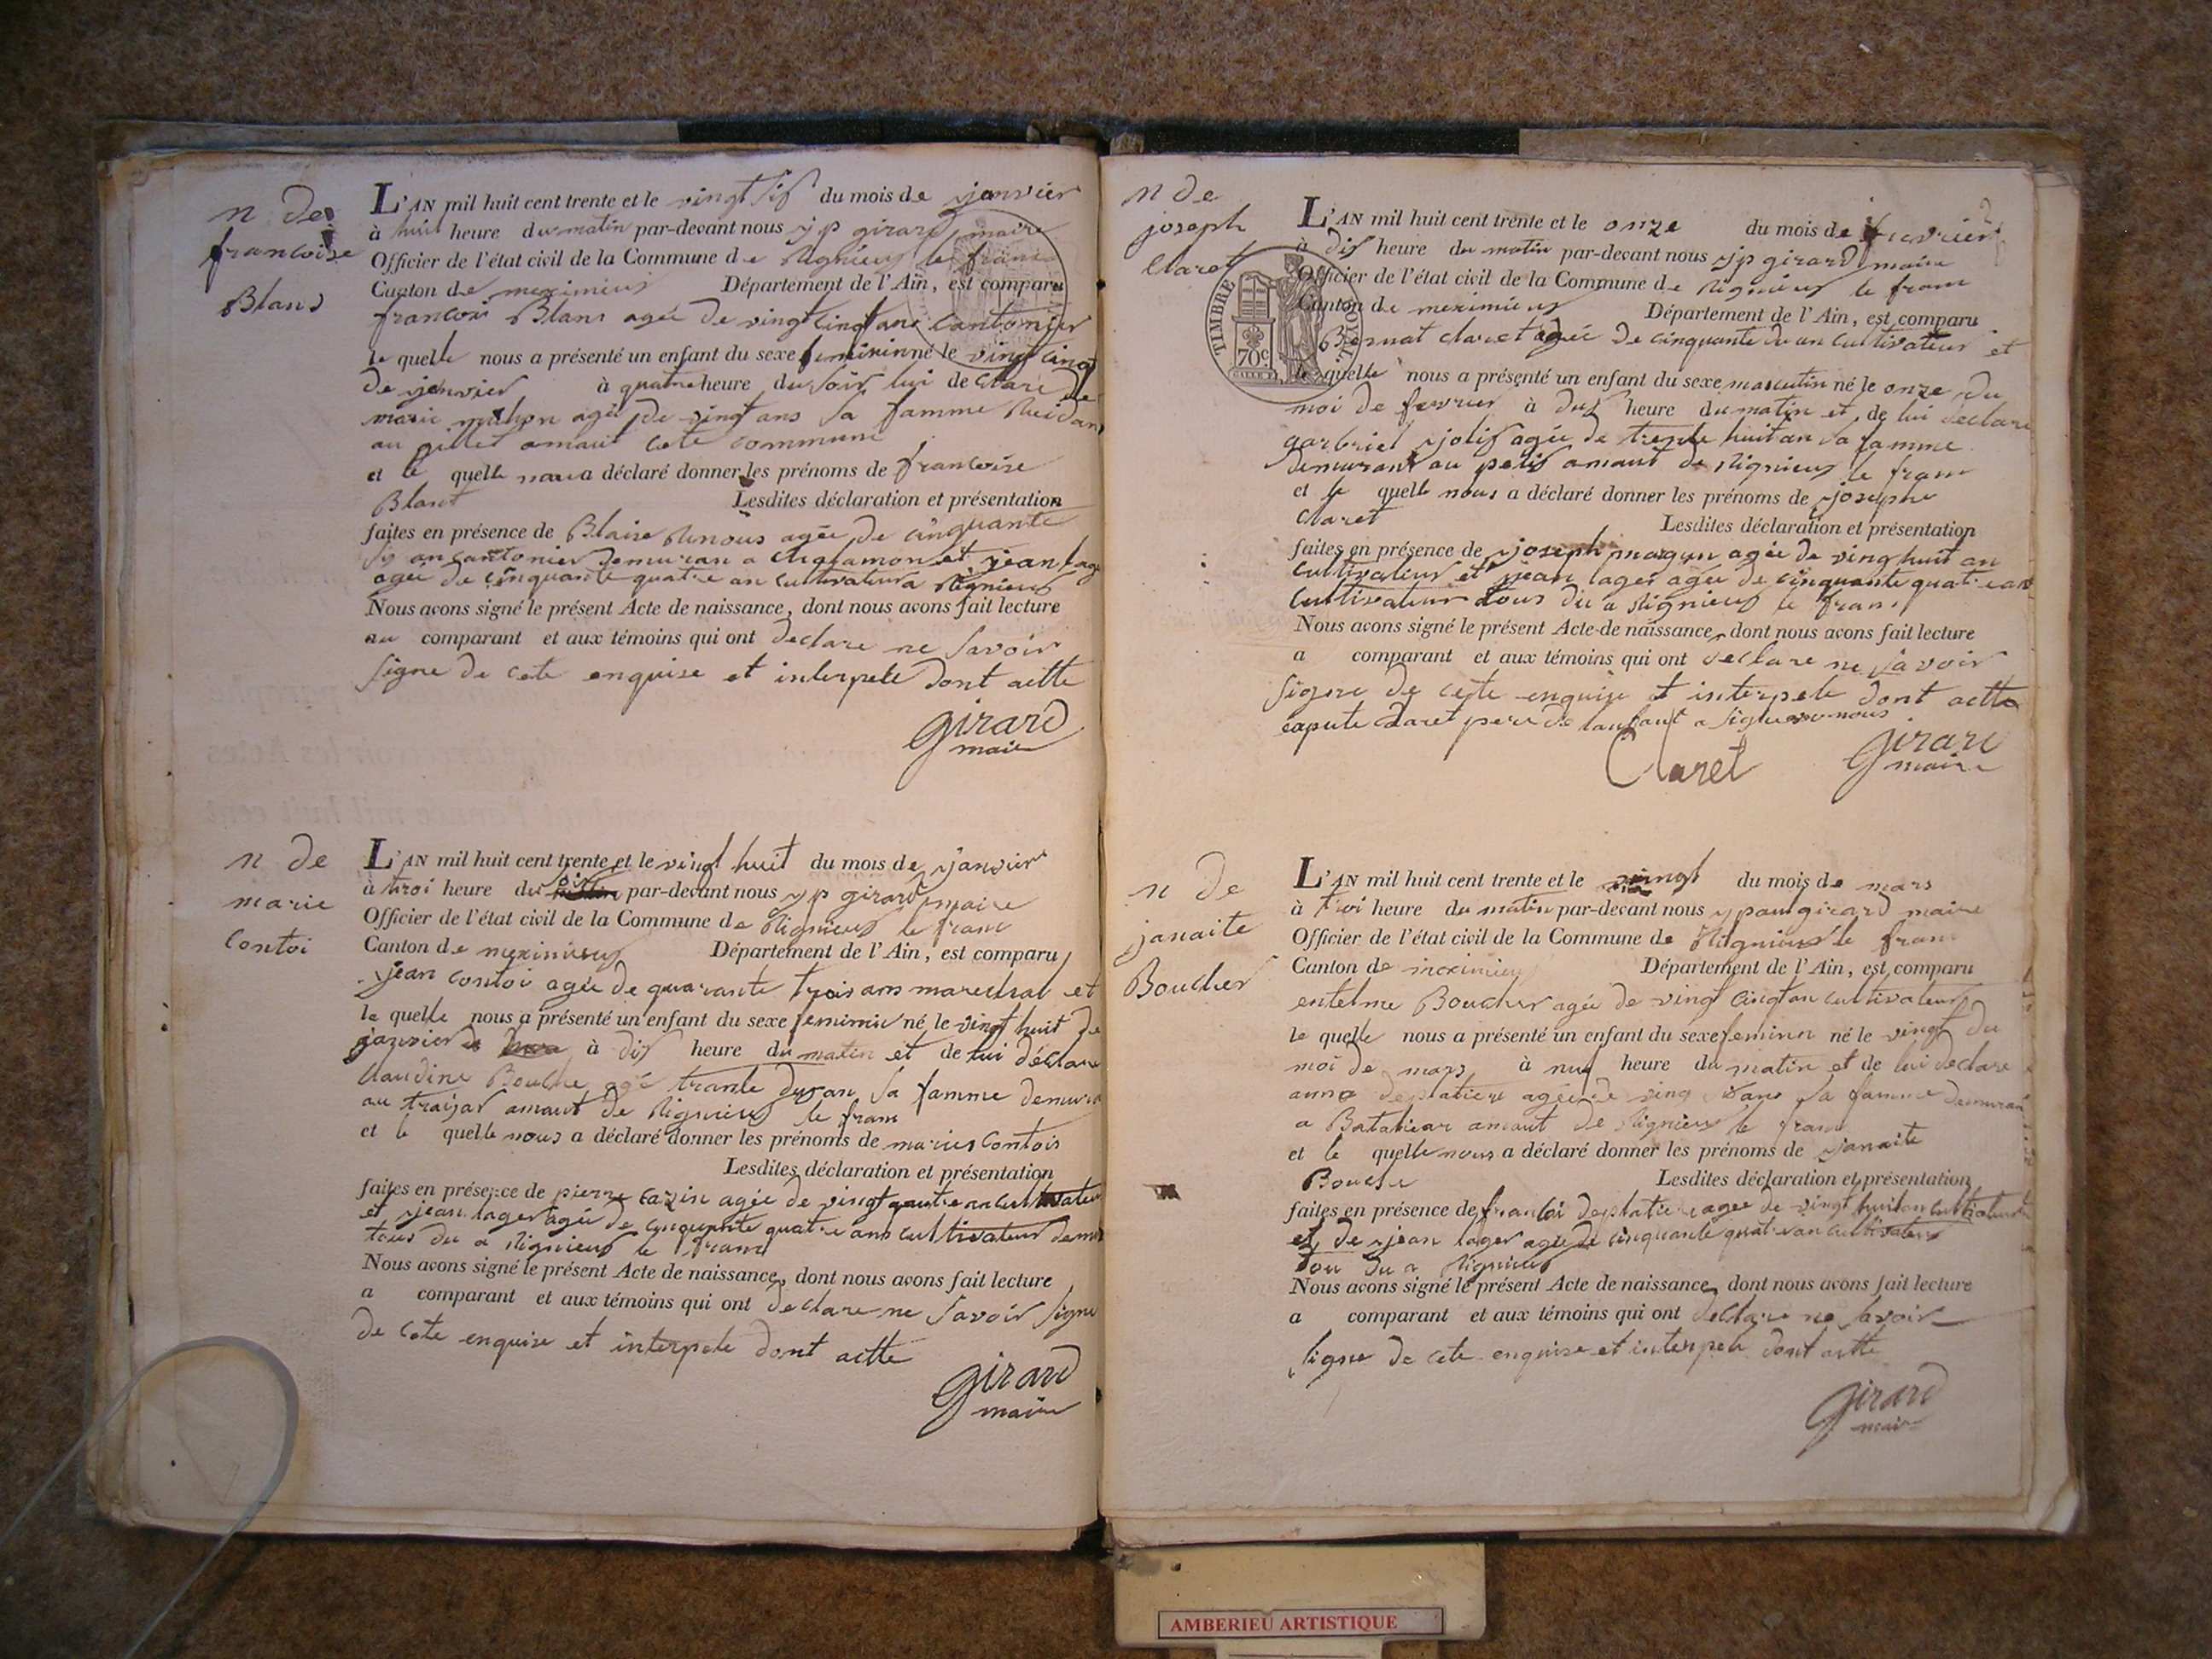 n de
francoise
Blans
L'AN mil huit cent trente et le vingt sis du mois de janvier
à huit heure du matin par-devant nous jp girard maire
Officier de l'état civil de la Commune de Rignieux le franc
Canton de meximieux Département de l'Ain, est comparu
francois Blans agée de vingt cinq ans cantonier
le quelle nous a présenté un enfant du sexe feminin né le vingt cinq
de janvier à quatre heure du soir lui declare de
marie agée de vingt ans sa famme
au amaut cete commune
et le quelle nous a déclaré donner les prénoms de francoise
Blant Lesdites déclaration et présentation
faites en présence de Blaise agée de cinquante
sis an cantonier demuran a et jean lager
agée de cinquante quatre an cultivateur a Rignieux
Nous avons signé le présent Acte de naissance, dont nous avons fait lecture
au comparant et aux témoins qui ont declare ne savoir
signe de cete enquise et interpele dont actte
girard
maire
n de
marie
Contoi
L'AN mil huit cent trente et le vingt huit du mois de janvier
à troi heure du soir par-devant nous jp girard maire
Officier de l'état civil de la Commune de Rignieux le franc
Canton de meximieux Département de l'Ain, est comparu
jean contoi agée de quarante trois ans marechal et
le quelle nous a présenté un enfant du sexe feminin né le vingt huit de
janvier à dis heure du matin et de lui déclare
claudine Bouche agé trante dus an sa famme demuran
au amaut de Rignieux le franc
et le quelle nous a déclaré donner les prénoms de maries Contois
Lesdites déclaration et présentation
faites en présence de pierre cazin agée de vingt quatre an cultivateur
et jean lager agée de cinquante quatre ans cultivateur demur
tous du a Rignieux le franc
Nous avons signé le présent Acte de naissance, dont nous avons fait lecture
a comparant et aux témoins qui ont declare ne savoir signe
de cete enquise et interpele dont actte
girard
maire
n de
joseph
Claret
L'AN mil huit cent trente et le onze du mois de fevrier
à dis heure du matin par-devant nous jp girard maire
Officier de l'état civil de la Commune de Rignieux le franc
Canton de meximieux Département de l'Ain, est comparu
Bernat claret agée de cinquante du an cultivateur et
le quelle nous a présenté un enfant du sexe masculin né le onze du
moi de fevrier à dus heure du matin et de lui declare
garbriel jolis agée de trente huit an sa famme
demurant au petis amaut de Rignieux le franc
et le quelle nous a déclaré donner les prénoms de josephe
claret Lesdites déclaration et présentation
faites en présence de joseph agée de ving huit an
cultivateur et jean lager agée de cinquante quatre an
cultivateur tous du a Rignieux le franc
Nous avons signé le présent Acte de naissance, dont nous avons fait lecture
a comparant et aux témoins qui ont declare ne savoir
signe de cete enquise et interpele dont actte
claret pere de lanfant a signe nous
Claret
girard
maire
TIMBRE ROYAL
70c
n de
janaite
Boucher
L'AN mil huit cent trente et le vingt du mois de mars
à troi heure du matin par-devant nous j paul girard maire
Officier de l'état civil de la Commune de Rignieux le franc
Canton de meximieux Département de l'Ain, est comparu
entelme Boucher agée de vingt cinq an cultivateur
le quelle nous a présenté un enfant du sexe feminin né le vingt du
moi de mars à nuf heure du matin et de lui declare
anne deplatiere agée de ving ans sa famme demuran
a amaut de Rignieux le franc
et le quelle nous a déclaré donner les prénoms de janaite
Bouche Lesdites déclaration et présentation
faites en présence de francoi deplatiere agee de vingt huit an cultivateur
et de jean lager agée de cinquante quatre an cultivateur
tou du a Rignieux
Nous avons signé le présent Acte de naissance, dont nous avons fait lecture
a comparant et aux témoins qui ont declare ne savoir
signe de cete enquise et interpele dont actte
girard
maire
AMBERIEU ARTISTIQUE